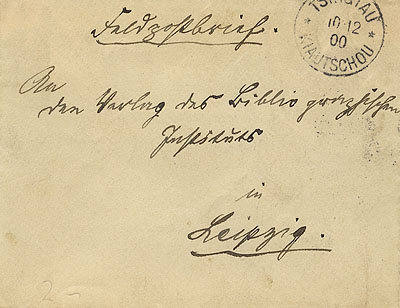 Feldpostbrief.
TSINGTAU
10 12
00
KIAUTSCHOU
An
den Verlag des Bibliographischen
Instituts
in
Leipzig.